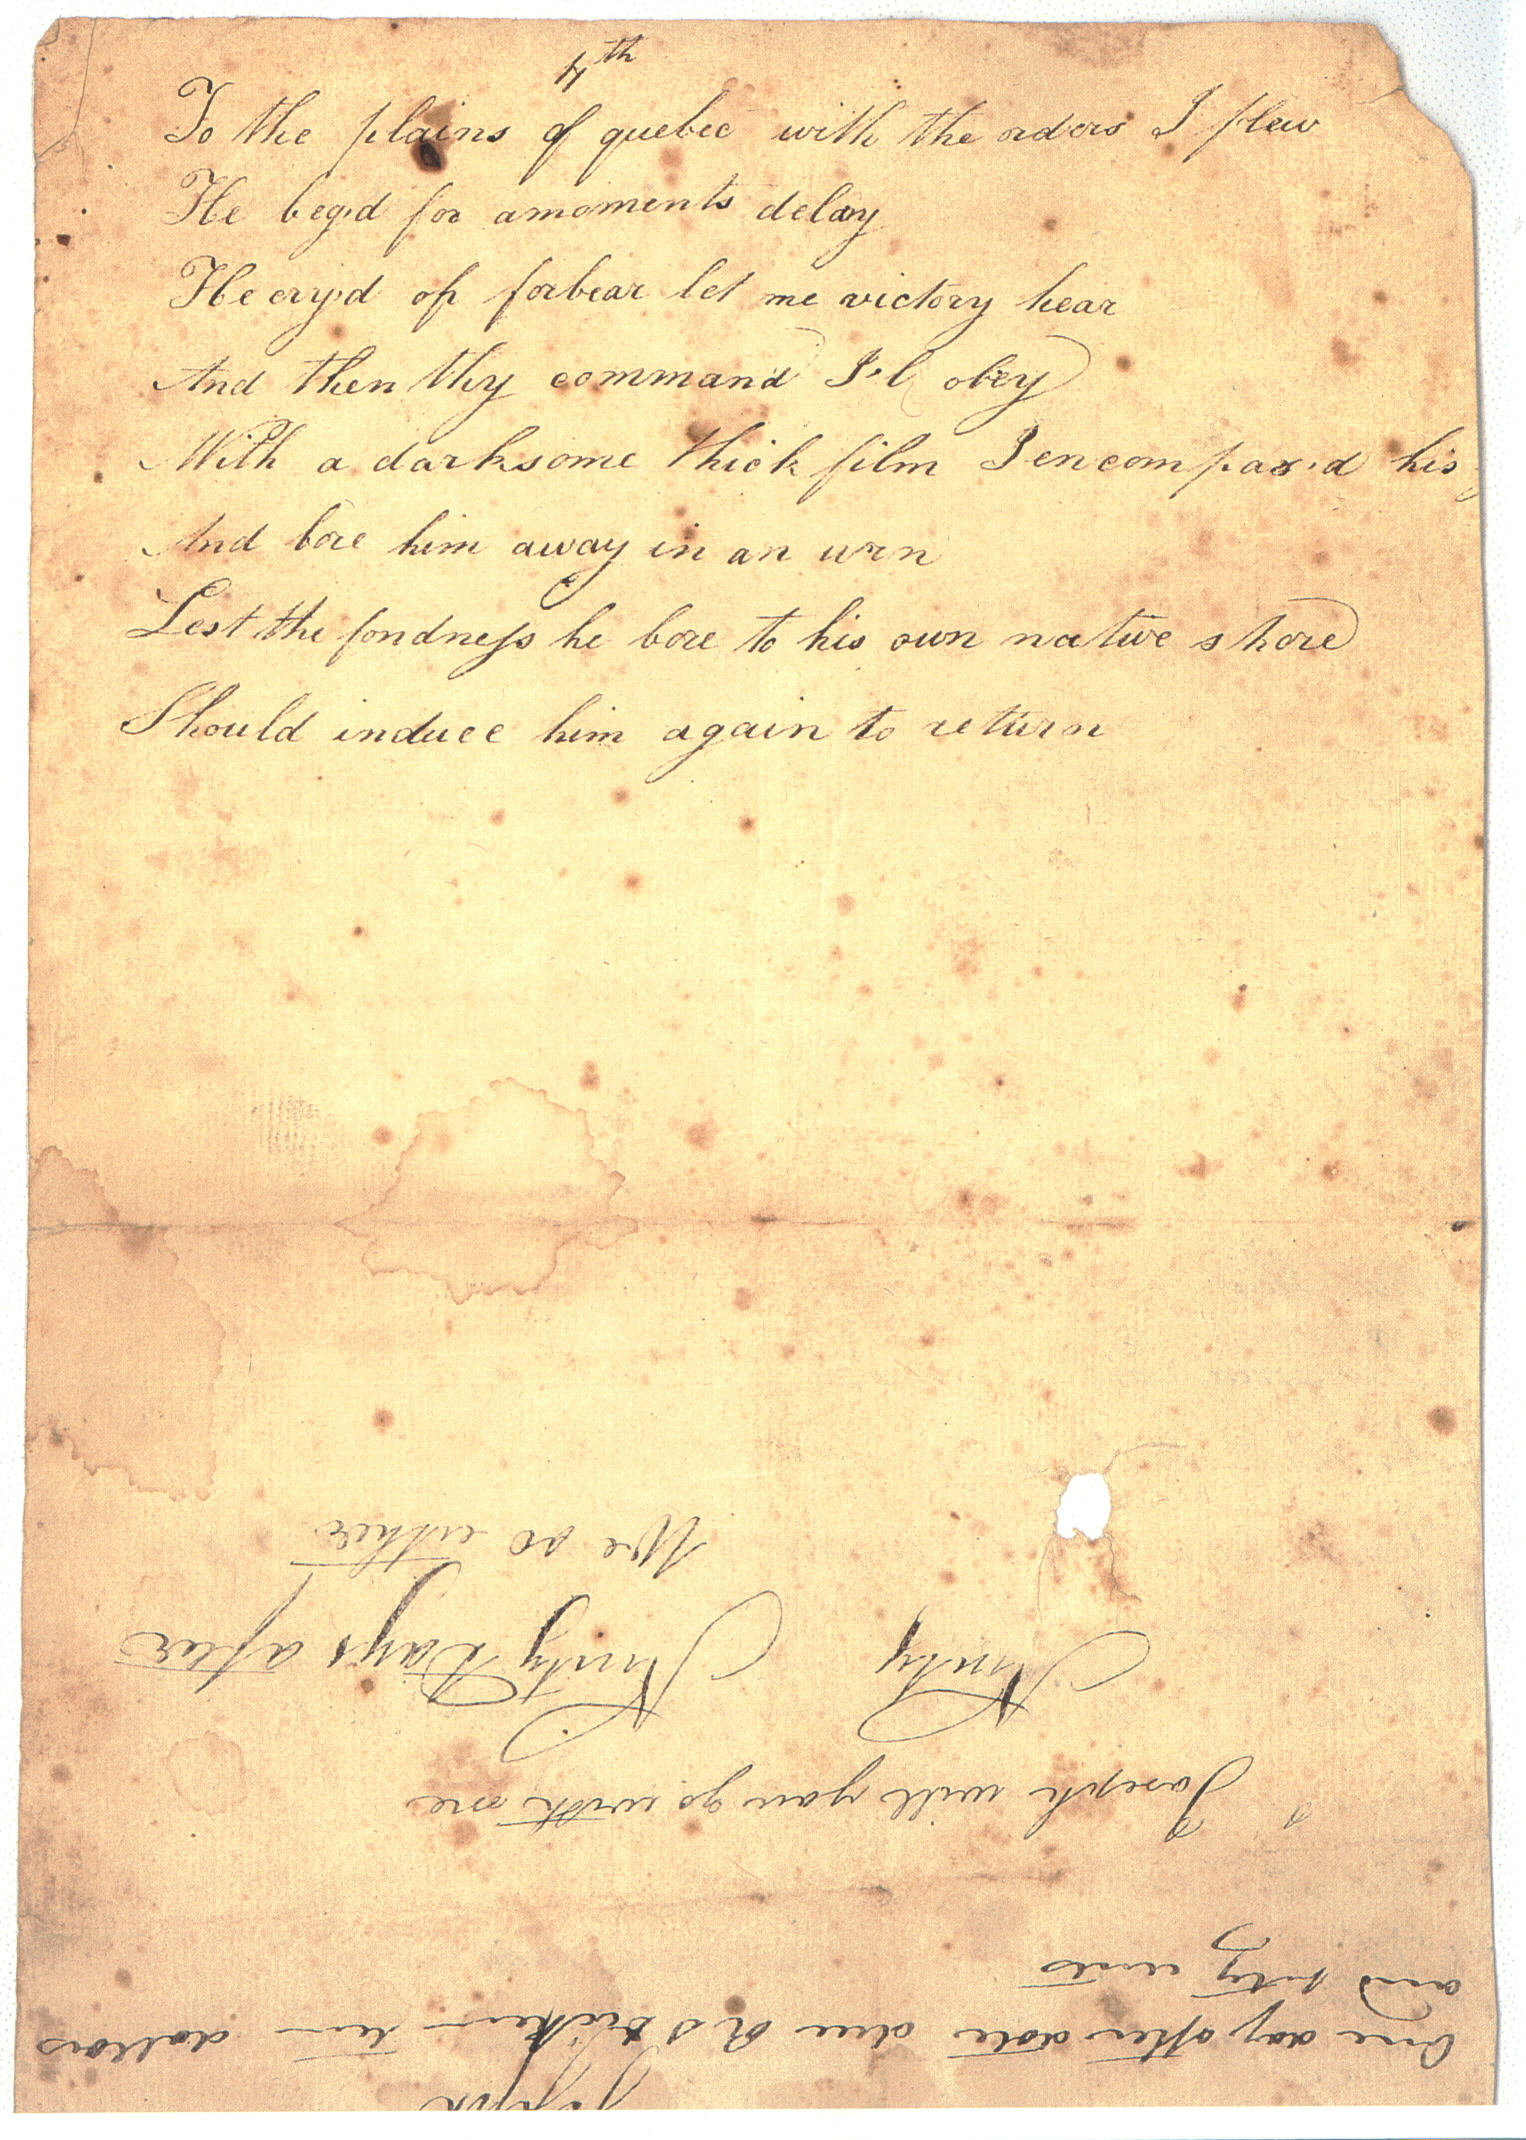 4th
To the plains of quebec with the orders I flew
He beg'd for amoments delay
He cry'd oh forbear let me victory hear
And then thy command I'l obey
With a darksome thick film I encompas'd his
And bore him away in an urn
Lest the fondness he bore to his own native shore
Should induce him again to return
Joseph
One day after date due A ten dollars
and fifty cents
Joseph will you go with me
Ninty Ninty Days after
We so either